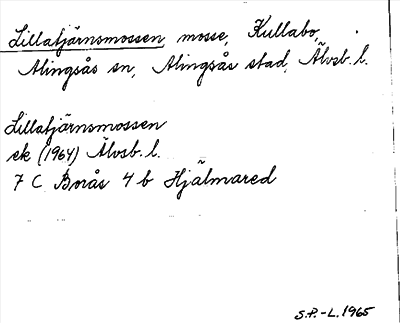 Lillatjärnsmossen, mosse, Kullabo,
Alingsås sn, Alingsås stad, Älvsb. l.
Lillatjärnsmossen
ek (1964) Älvsb. l.
7 C Borås 4 b Hjälmared
S.P.-L. 1965